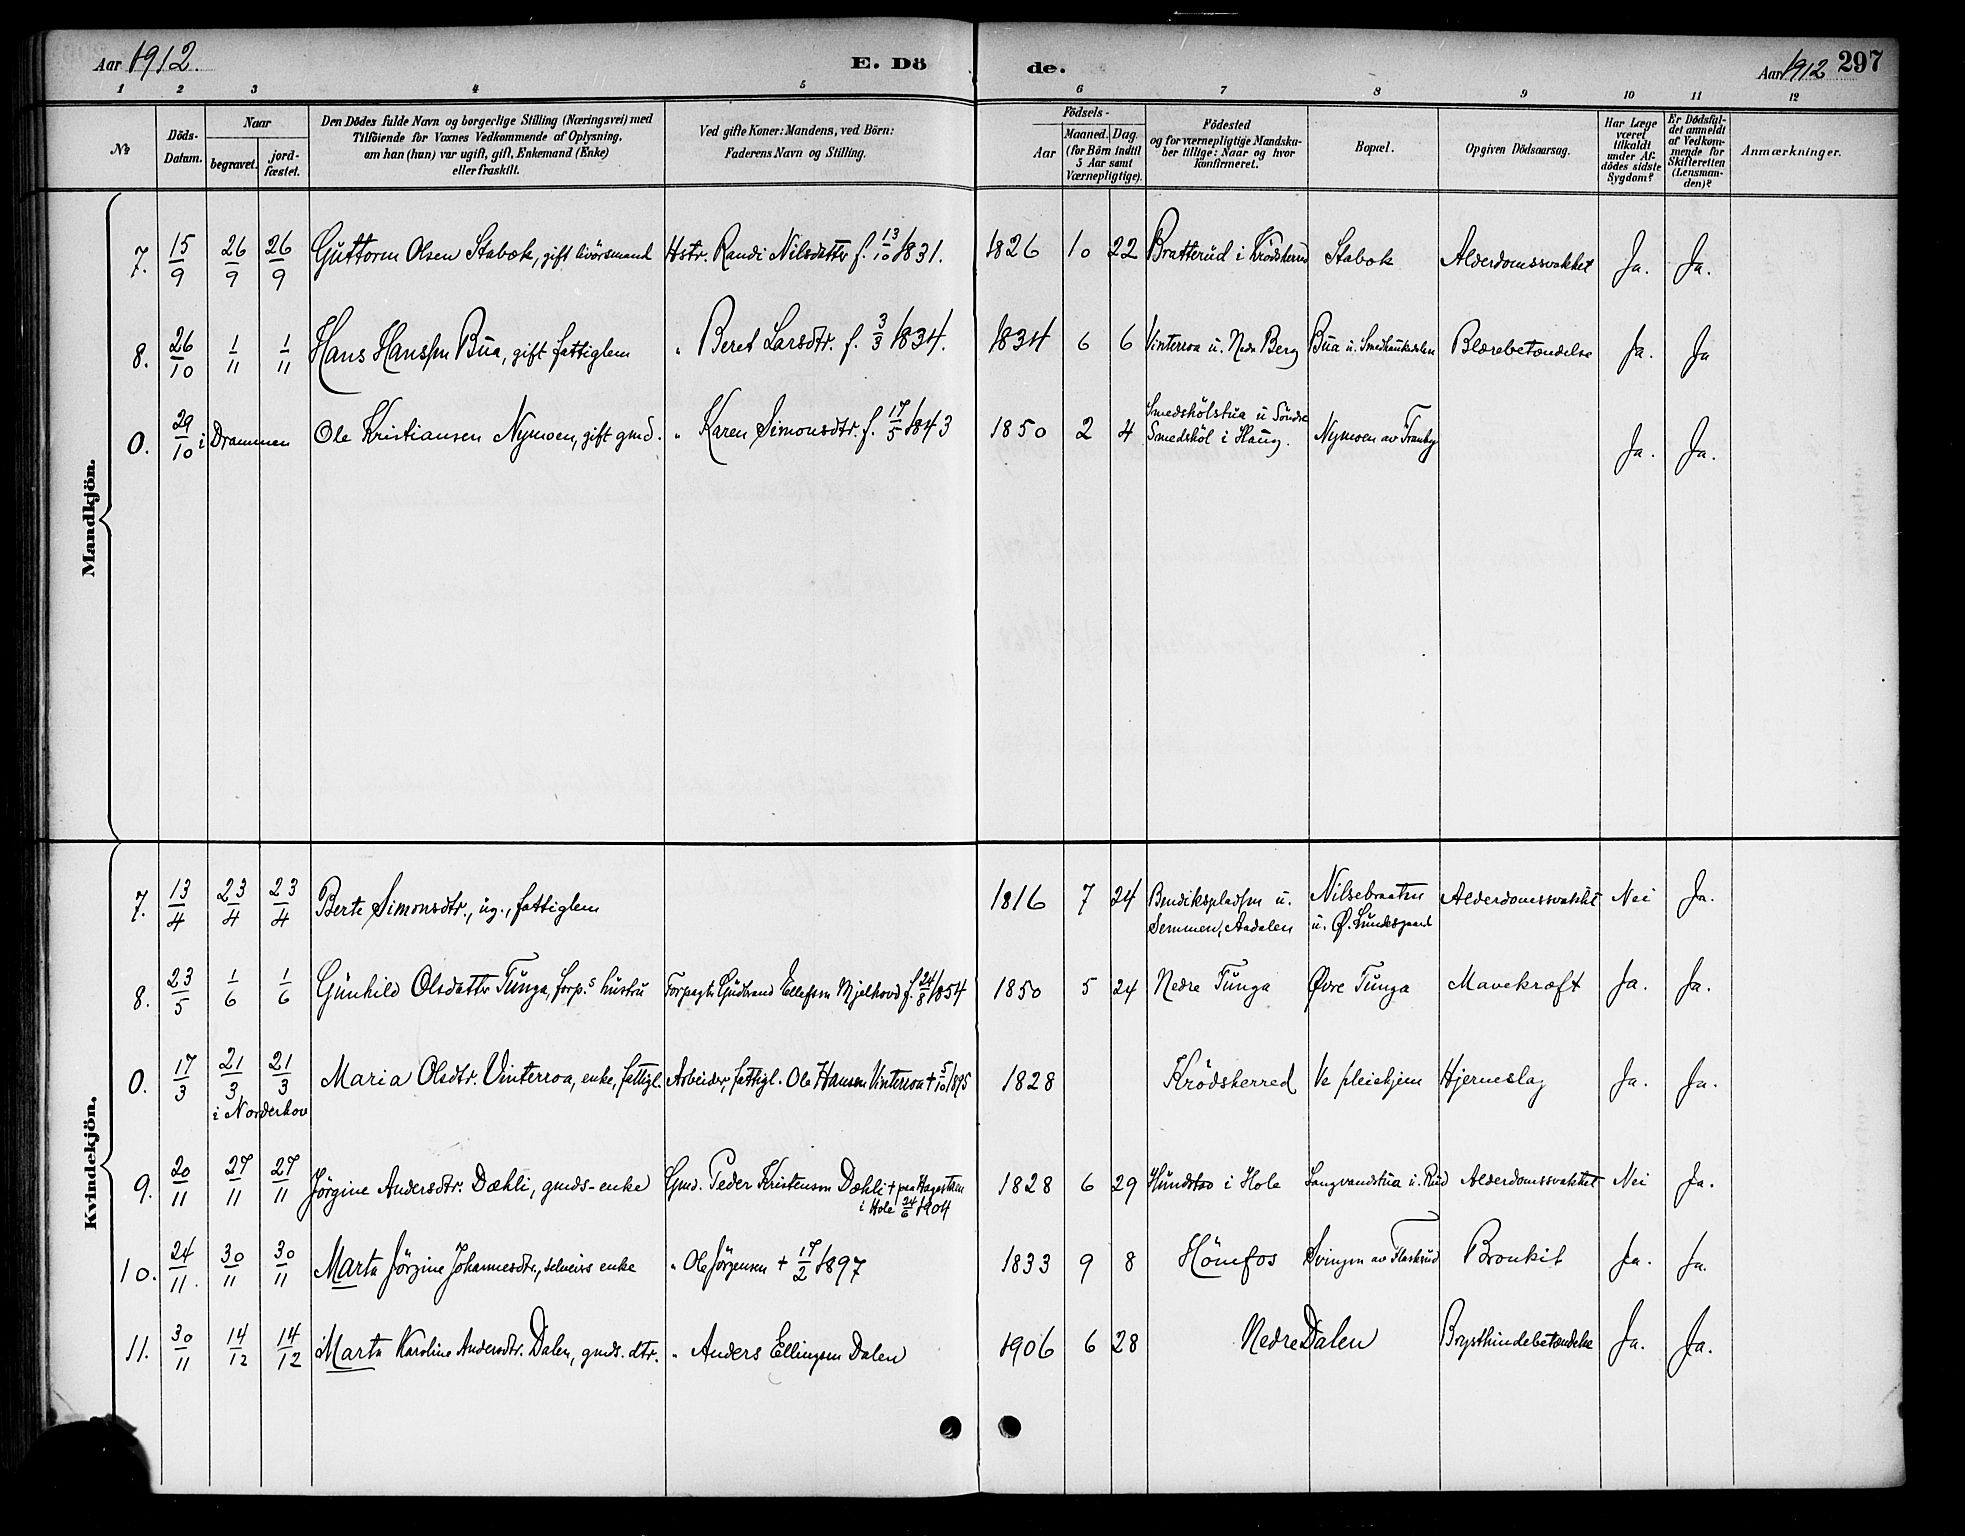 Aar 1912. E. Dö de. Aar 1912 297
1 2 3 4 5 6 7 8 9 10 11 12
No
Döds-Datum.
Naar
begravet.
jord-fæstet.
Den Dödes fulde Navn og borgerlige Stilling (Næringsvei) med
Tilföiende for Voxnes Vedkommende af Oplysning,
om han (hun) var ugift, gift, Enkemand (Enke)
eller fraskilt.
Ved gifte Koner: Mandens, ved Börn:
Faderens Navn og Stilling.
Födsels-
Aar
Maaned. Dag.
(for Börn indtil
5 Aar samt
Værnepligtige).
Födested
og for værnepligtige Mandska-
ber tillige: Naar og hvor
konfirmeret.
Bopæl.
Opgiven Dödsaarsag.
Har Læge
været
tilkaldt
under Af-
dödes sidste
Sygdom?
Er Dödsfal-
det anmeldt
af Vedkom-
mende for
Skifteretten
(Lensman-
den)?
Anmærkninger.
Mandkjön.
7. 15/9 26/9 26/9 Guttorm Olsen Stabæk, gift livörsmand Hstr. Randi Nilsdatter f. 13/10 1831. 1826 10 22 Bratterud i Krödsherud Stabæk Alderdomssvakhet Ja. Ja.
8. 26/10 1/11 1/11 Hans Hanssen Bua, gift fattiglem " Beret Larsdtr. f. 3/3 1834. 1834 6 6 Vinterroa u. Nedr Berg Bua u. Blærebetændelse Ja. Ja
0. 29/10 i Drammen Ole Kristiansen Nymoen, gift gmd. " Karen Simonsdtr. f. 17/5 1843 1850 2 4 Smedshölstua u Söndre
Smedshöl i Haug. Nymoen av Tranby Ja. Ja.
Kvindekjön.
7. 13/4 23/4 23/4 Berte Simonsdtr., ug., fattiglem 1816 7 24 Bendikspladsen u. Nilsebraaten Alderdomssvakhet Nei Ja.
Semmen, Aadalen u. Ø. Lundesgaard
8. 23/5 1/6 1/6 Gunhild Olsdatter Tunga, forp.s hustru Forpagter Gudbrand Ellefsen Mjelhovd f. 24/8 1854 1850 5 24 Nedre Tunga Øvre Tunga Mavekræft Ja. Ja.
0. 17/3 21/3 21/3 Maria Olsdtr. Vinterroa, enke, fattigl. Arbeider, fattigl. Ole Hansen Vinterroa + 5/10 1895 1828 Krödsherred Ve pleiehjem Hjerneslag Ja. Ja.
i Norderhov
9. 20/11 27/11 27/11 Jörgine Andersdtr. Dæhli, gmds-enke Gmd. Peder Kristensen Dæhli + paa Hagesteen
i Hole 24/6 1904 1828 6 29 Hundstad i Hole Langvandstua u. Rud Alderdomssvakhet Nei Ja.
10. 24/11. 30/11 30/11 Marta Jörgine Johannesdtr., selveiers enke " Ole Jörgensen + 17/2 1897 1833 9 8 Hönefos Svingen av Flaskerud Bronkit Ja. Ja.
11. 30/11 14/12 14/12 Marta Karoline Andersdtr. Dalen, gmds. dtr. " Anders Ellingsen Dalen 1906 6 28 Nedre Dalen Brysthindebetændelse Ja. Ja.